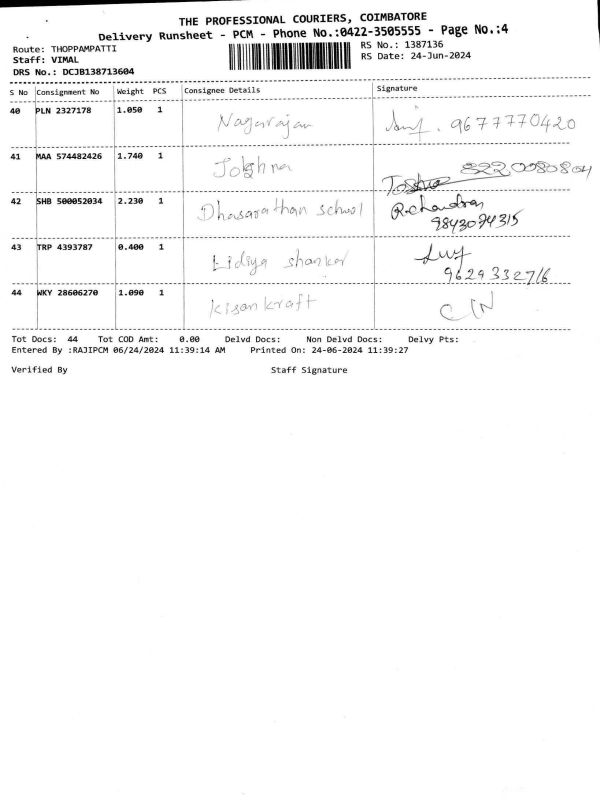 THE PROFESSIONAL COURIERS, COIMBATORE
Delivery Runsheet - PCM - Phone No.:0422-3505555 - Page No.:4
Route: THOPPAMPATTI RS No.: 1387136
Staff: VIMAL RS Date: 24-Jun-2024
DRS No.: DCJB138713604
S No Consignment No Weight PCS Consignee Details Signature
40 PLN 2327178 1.050 1 Nagarajan 9677770420
41 MAA 574482426 1.740 1
42 SHB 500052034 2.230 1 Dhasarathan school R.chandran
9843074315
43 TRP 4393787 0.400 1 Lidiya shankar
9629332716
44 WKY 28606270 1.090 1 Kisankraft
Tot Docs: 44 Tot COD Amt: 0.00 Delvd Docs: Non Delvd Docs: Delvy Pts:
Entered By :RAJIPCM 06/24/2024 11:39:14 AM Printed On: 24-06-2024 11:39:27
Verified By Staff Signature